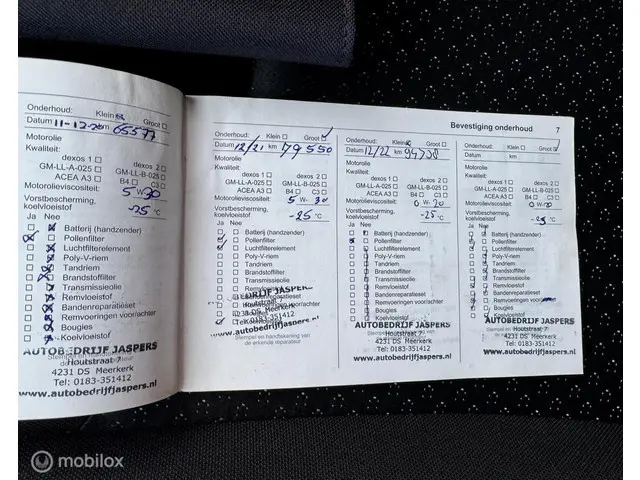 Onderhoud: Klein Groot
Datum 11-12-20 km 65577
Motorolie
Kwaliteit:
dexos 1 dexos 2
GM-LL-A-025 GM-LL-B-025
ACEA A3 B4 C3
Motorolieviscositeit:
5 W-30
Vorstbescherming.
koelvloeistof -25 °C
Ja Nee
Batterij (handzender)
Pollenfilter
Luchtfilterelement
Poly-V-riem
Tandriem
Brandstoffilter
Transmissieolie
Remvloeistof
Bandenreparatieset
Remvoeringen voor/achter
Bougies
Koelvloeistof
AUTOBEDRIJF JASPERS
Houtstraat 7
4231 DS Meerkerk
Tel: 0183-351412
www.autobedrijfjaspers.nl
Onderhoud: Klein Groot
Datum 12/21 km 79550
Motorolie
Kwaliteit:
dexos 1 dexos 2
GM-LL-A-025 GM-LL-B-025
ACEA A3 B4 C3
Motorolieviscositeit:
5 W-30
Vorstbescherming.
koelvloeistof -25 °C
Ja Nee
Batterij (handzender)
Pollenfilter
Luchtfilterelement
Poly-V-riem
Tandriem
Brandstoffilter
Transmissieolie
Remvloeistof
Stempel en handtekening van
de erkende reparateur
Onderhoud: Klein Groot
Datum 12/22 km
Motorolie
Kwaliteit:
dexos 1 dexos 2
GM-LL-A-025 GM-LL-B-025
ACEA A3 B4 C3
Motorolieviscositeit:
0 W-20
Vorstbescherming.
koelvloeistof -25 °C
Ja Nee
Batterij (handzender)
Pollenfilter
Luchtfilterelement
Poly-V-riem
Tandriem
Brandstoffilter
Transmissieolie
Remvloeistof
Bandenreparatieset
Remvoeringen voor/achter
Bougies
Koelvloeistof
AUTOBEDRIJF JASPERS
Houtstraat 7
4231 DS Meerkerk
Tel: 0183-351412
www.autobedrijfjaspers.nl
Bevestiging onderhoud 7
Onderhoud: Klein Groot
Datum km
Motorolie
Kwaliteit:
dexos 1 dexos 2
GM-LL-A-025 GM-LL-B-025
ACEA A3 B4 C3
Motorolieviscositeit:
0 W-20
Vorstbescherming.
koelvloeistof -25 °C
Ja Nee
Batterij (handzender)
Pollenfilter
Luchtfilterelement
Poly-V-riem
Tandriem
Brandstoffilter
Transmissieolie
Remvloeistof
Bandenreparatieset
Remvoeringen
Bougies
Koelvloeistof
AUTOBEDRIJF JASPERS
Houtstraat 7
4231 DS Meerkerk
Tel: 0183-351412
www.autobedrijfjaspers.nl
mobilox